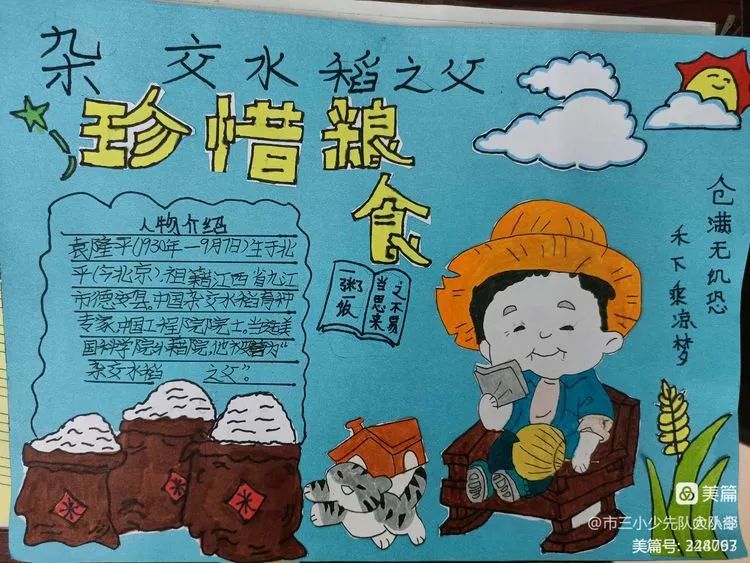 杂交水稻之父
珍惜粮
食
人物介绍
袁隆平(1930年一9月7日)生于北
平(今北京)，祖籍江西省九江
市德安县。中国杂交水稻育种
专家，中国工程院院士。当选美
国科学院外籍院，他被誉为“
杂交水稻 之父”。
一粥一饭
当思来
之不易
仓满无饥恐
禾下乘凉梦
米
米
美篇
@市三小少先队大队部
美篇号: